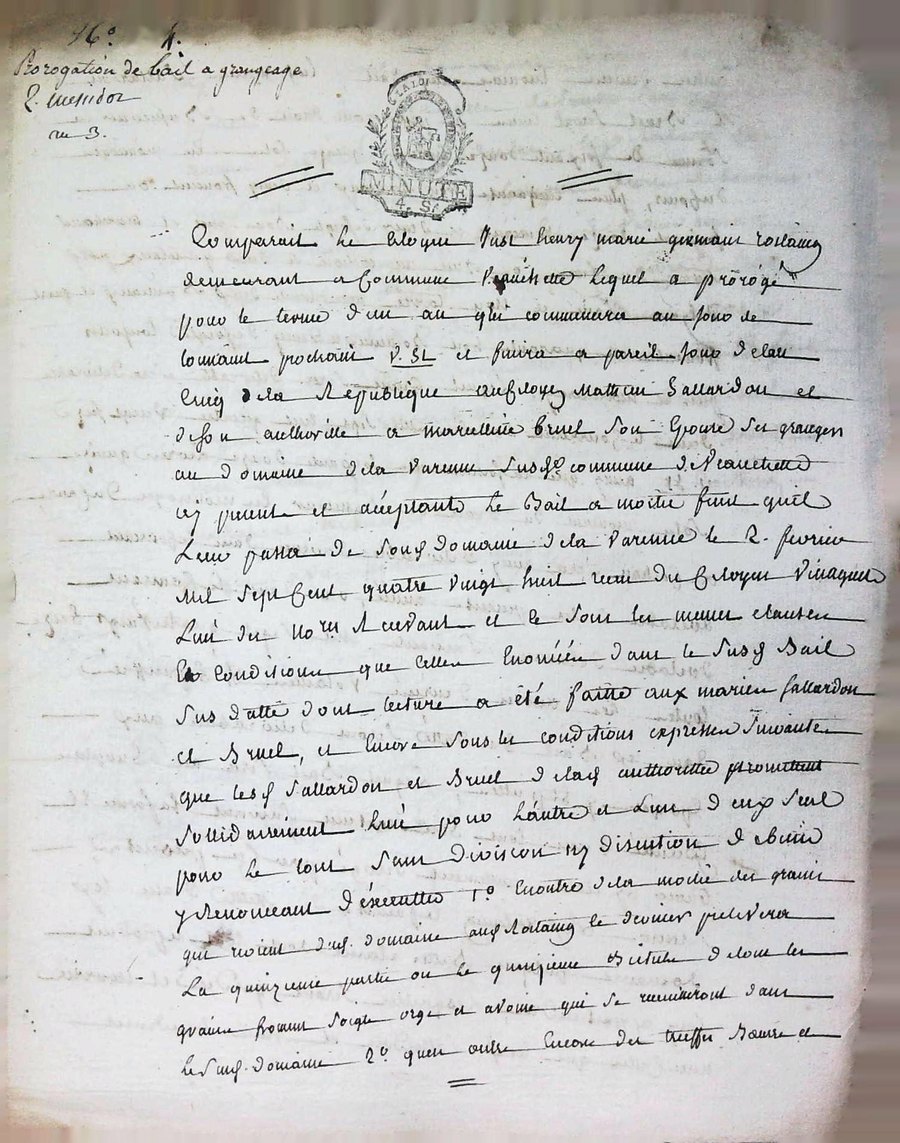 16° 4.
Prorogation de bail a grangeage
2. Messidor
an 3.
LA LOI
MINUTE
4. S.
Comparait le Citoyen Just henry marie germain rostaing
demeurant a Commune Veauchette lequel a prorogé
pour le terme d'un an qui commencera au jour de
toussaint prochain V. St et finira a pareil jour de l'an
Cinq de la République au Citoyen Mathieu Gallardon et
de son authorité a marcelline bruel son Epouse ses grangers
au domaine de la varenne susd. commune de Veauchette
icy presents et acceptants le Bail a moitié fruit qu'il
Leur passa de son d. domaine de la varenne le 2. fevrier
mil sept Cent quatre vingt huit recu du Citoyen
L'un des No.res Recevant et ce sous les memes clauses
Et Conditions que celles Enoncées dans le susd. Bail
sus datté dont lecture a été faitte aux mariés Gallardon
et Bruel, et Encore sous les conditions expresses suivantes
que lesd. Gallardon et Bruel de lad. authorité promettent
sollidairement l'un pour l'autre et L'un d'eux seul
pour le tout sans division ny discution de biens
y Renonceant d'éxecutter 1.° Enoutre de la moitié des grains
qui aud. domaine aud. Rostaing ce dernier prelevera
La quinzieme partie ou le quinzieme Bichet de tous les
grains froment soigle orge et avoine qui se recueilliront dans
le susd. domaine 2.° qu'en outre Encore des truffes Beurre et